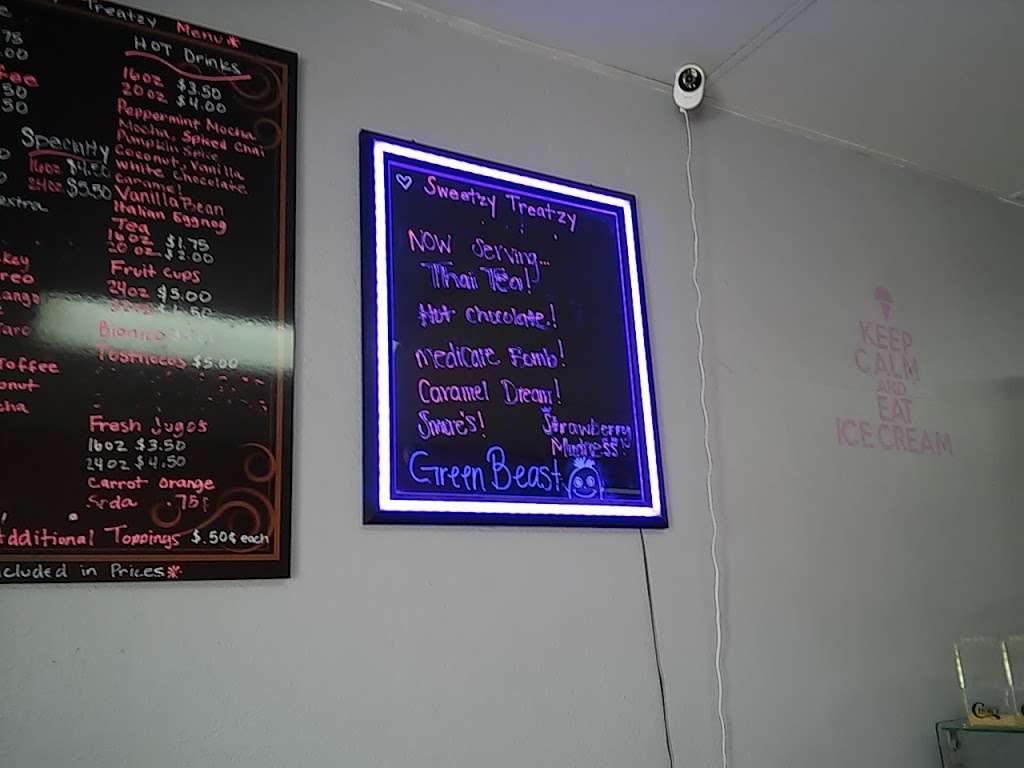 Treatzy Menu*
HOT Drinks
16oz $3.50
20oz $4.00
Peppermint Mocha
Mocha, Spiced Chai
Pumpkin Spice
Coconut, Vanilla
White Chocolate
Caramel
Vanilla Bean
Italian Eggnog
Tea
16oz $1.75
20oz $2.00
Fruit cups
24oz $5.00
Bionico
Tostilocos $5.00
Fresh Jugos
16oz $3.50
24oz $4.50
Carrot orange
Soda .75¢
Additional Toppings $.50¢ each
Included in Prices*
Specialty
16oz $4.50
24oz $5.50
extra
♡ Sweetzy Treatzy
NOW Serving...
Thai Tea!
Hot chocolate!
medicare Bomb!
Caramel Dream!
Smore's!
Strawberry
Madness!
Green Beast
KEEP
CALM
AND
EAT
ICE CREAM